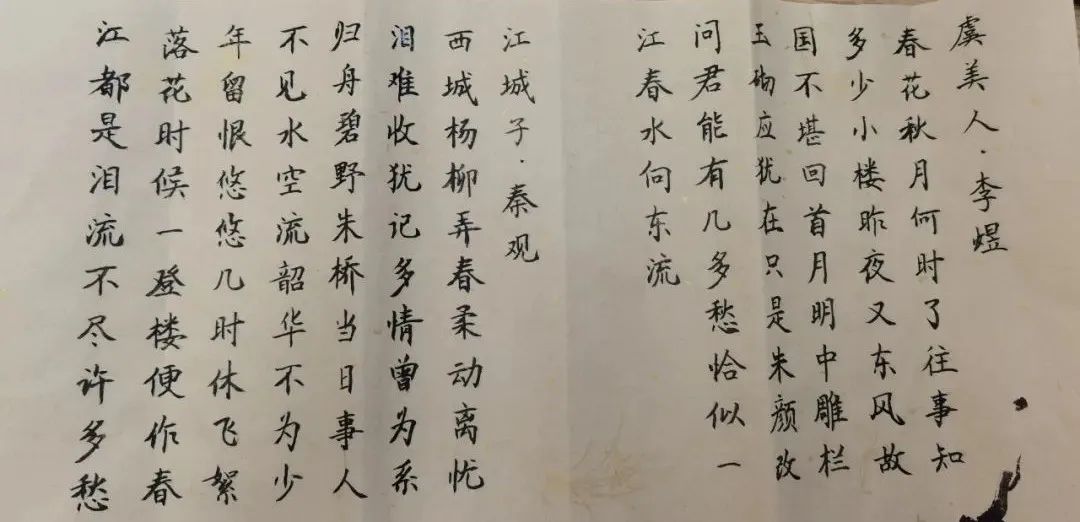 虞美人·李煜
春花秋月何时了往事知
多少小楼昨夜又东风故
国不堪回首月明中雕栏
玉砌应犹在只是朱颜改
问君能有几多愁恰似一
江春水向东流
江城子·秦观
西城杨柳弄春柔动离忧
泪难收犹记多情曾为系
归舟碧野朱桥当日事人
不见水空流韶华不为少
年留恨悠悠几时休飞絮
落花时候一登楼便作春
江都是泪流不尽许多愁